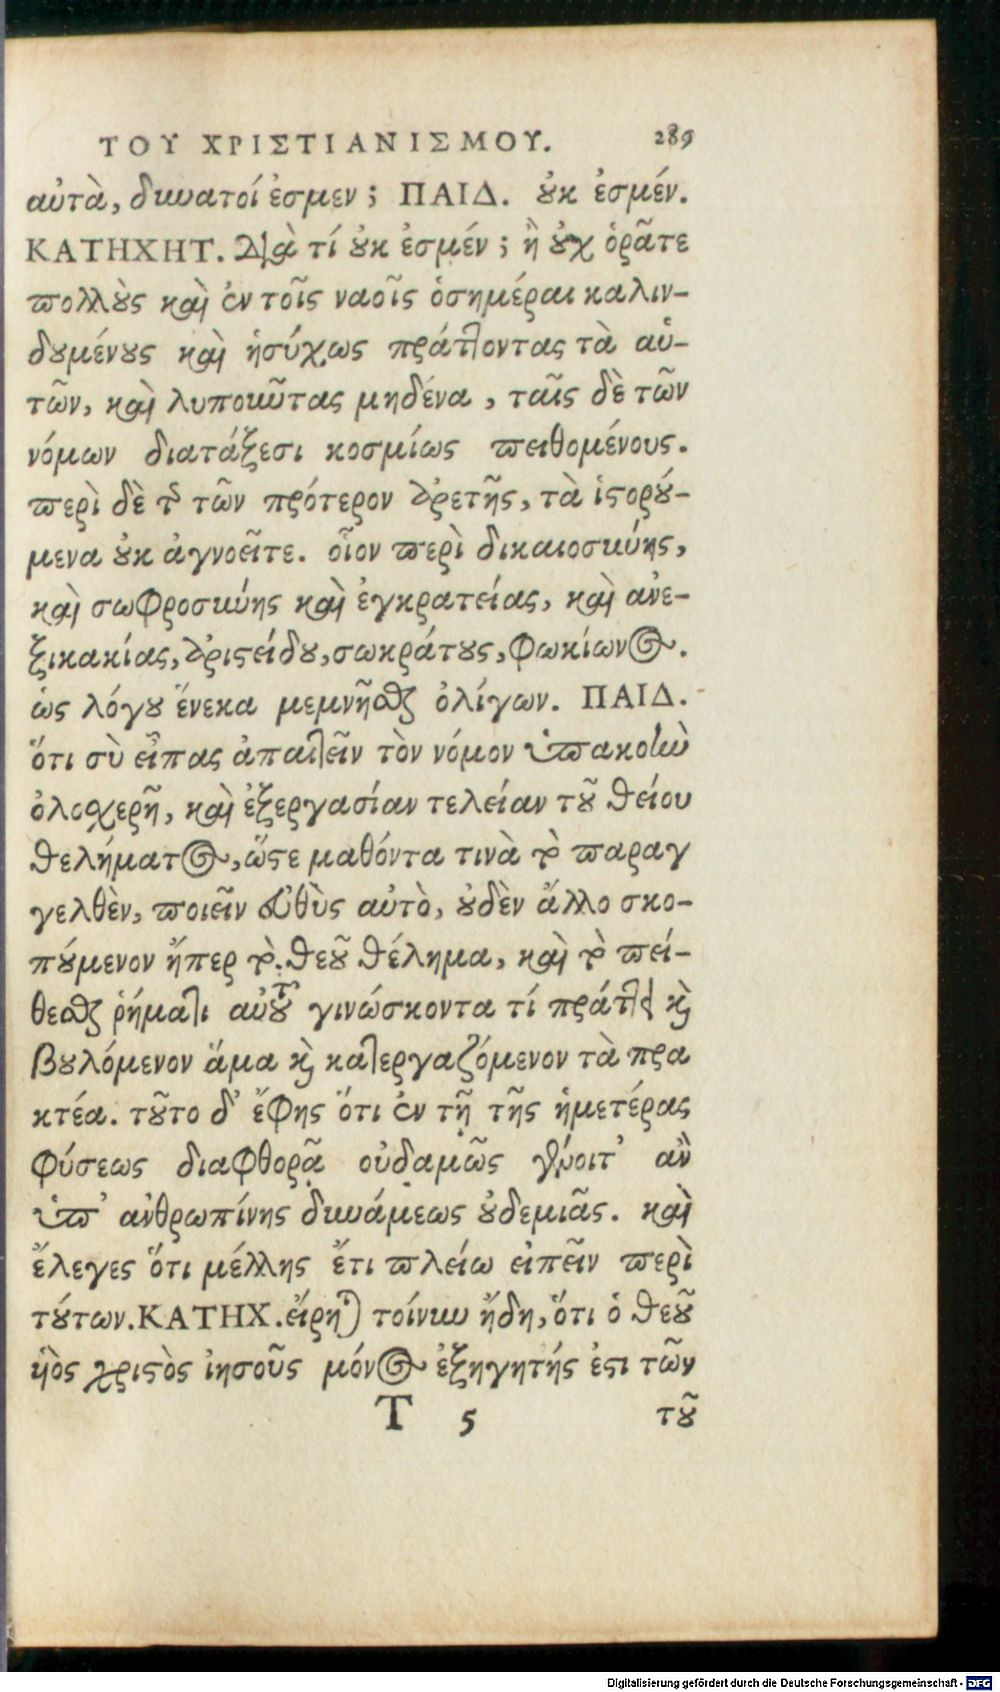 ΤΟΥ ΧΡΙΣΤΙΑΝΙΣΜΟΥ. 289
αὐτὰ, δυνατοί ἐσμεν; ΠΑΙΔ. οὐκ ἐσμέν.
ΚΑΤΗΧΗΤ. Διὰ τί οὐκ ἐσμέν; ἢ οὐχ ὁρᾶτε
πολλοὺς καὶ ἐν τοῖς ναοῖς ὁσημέραι καλιν-
δουμένους καὶ ἡσύχως πράττοντας τὰ αὑ-
τῶν, καὶ λυποῦντας μηδένα, ταῖς δὲ τῶν
νόμων διατάξεσι κοσμίως πειθομένους.
περὶ δὲ τῆς τῶν πρότερον ἀρετῆς, τὰ ἱστορού-
μενα οὐκ ἀγνοεῖτε. οἷον περὶ δικαιοσύνης,
καὶ σωφροσύνης καὶ ἐγκρατείας, καὶ ἀνε-
ξικακίας, ἀριστείδου, σωκράτους, φωκίωνος.
ὡς λόγου ἕνεκα μεμνῆσθαι ὀλίγων. ΠΑΙΔ.
ὅτι σὺ εἶπας ἀπαιτεῖν τὸν νόμον ὑπακοὴν
ὁλοσχερῆ, καὶ ἐξεργασίαν τελείαν τοῦ θείου
θελήματος, ὥστε μαθόντα τινὰ τὸ παραγ
γελθὲν, ποιεῖν εὐθὺς αὐτὸ, οὐδὲν ἄλλο σκο-
πούμενον ἤπερ τὸ. θεοῦ θέλημα, καὶ τὸ πεί-
θεσθαι ῥήματι αὐτοῦ γινώσκοντα τί πράττει καὶ
βουλόμενον ἅμα καὶ κατεργαζόμενον τὰ πρα
κτέα. τοῦτο δ᾽ ἔφης ὅτι ἐν τῇ τῆς ἡμετέρας
φύσεως διαφθορᾷ οὐδαμῶς γένοιτ᾽ ἂν
ὑπ᾽ ἀνθρωπίνης δυνάμεως οὐδεμιᾶς. καὶ
ἔλεγες ὅτι μέλλης ἔτι πλείω εἰπεῖν περὶ
τούτων. ΚΑΤΗΧ. εἴρηται τοίνυν ἤδη, ὅτι ὁ θεοῦ
υἱὸς χριστὸς ἰησοῦς μόνος ἐξηγητής ἐστι τῶν
T 5 τοῦ
Digitalisierung gefördert durch die Deutsche Forschungsgemeinschaft - DFG